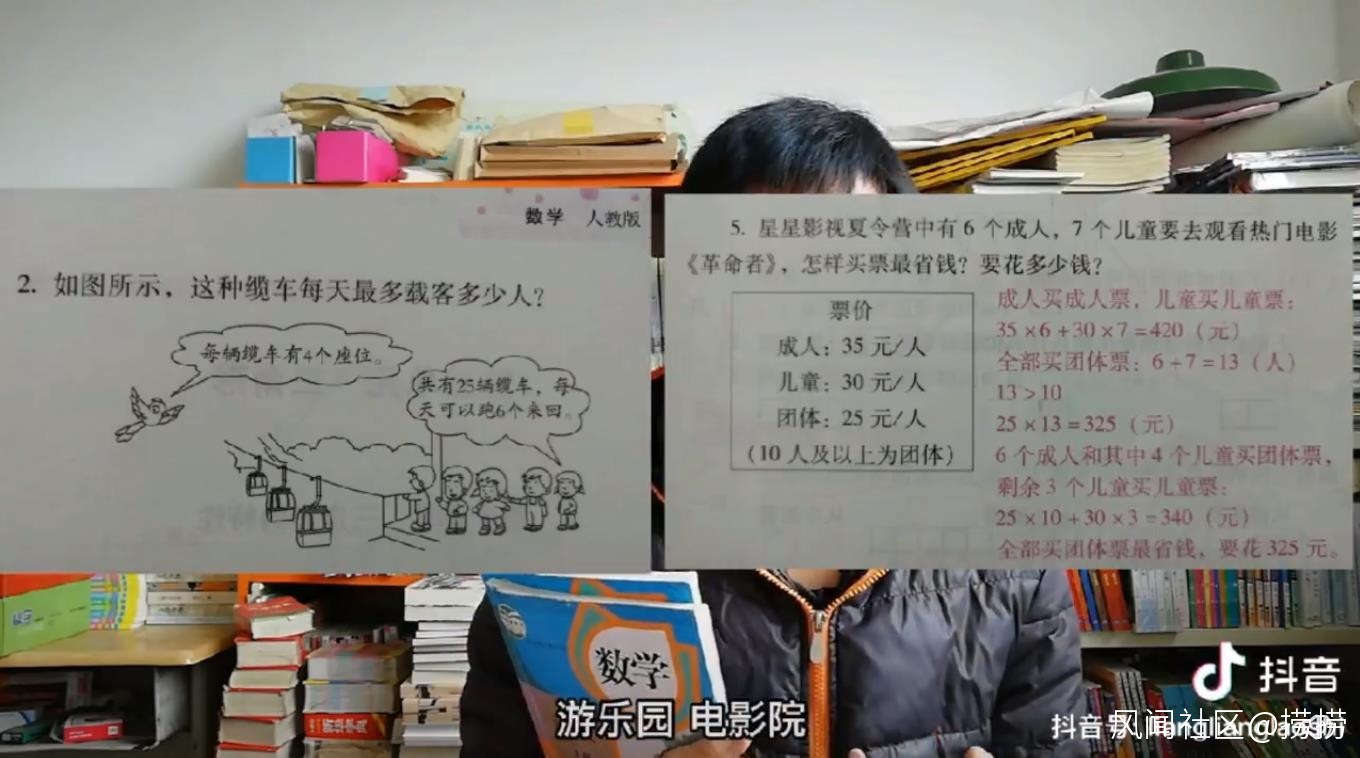 数学 人教版
2. 如图所示，这种缆车每天最多载客多少人？
每辆缆车有4个座位。
共有25辆缆车，每
天可以跑6个来回。
5. 星星影视夏令营中有 6 个成人，7 个儿童要去观看热门电影
《革命者》，怎样买票最省钱？要花多少钱？
票价
成人：35 元/人
儿童：30 元/人
团体：25 元/人
（10 人及以上为团体）
成人买成人票，儿童买儿童票：
35×6+30×7=420（元）
全部买团体票：6+7=13（人）
13＞10
25×13=325（元）
6 个成人和其中 4 个儿童买团体票，
剩余 3 个儿童买儿童票：
25×10+30×3=340（元）
全部买团体票最省钱，要花 325 元。
数学
游乐园 电影院
抖音
抖音号
风闻社区@捞捞